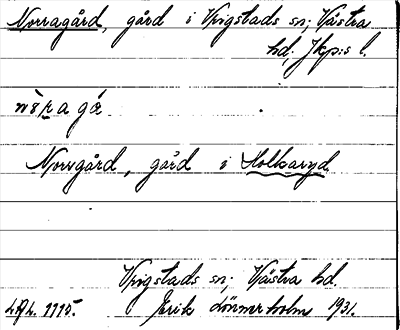 Norragård, gård i Vrigstads sn; Västra
hd, Jkp:s l.
nòra gɑ
Norrgård, gård i Holkaryd
Vrigstads sn; Västra hd.
Erik Lönnerholm 1931.